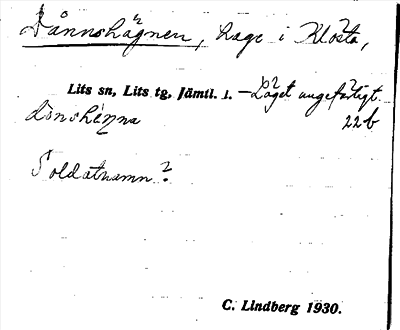 Dånnshägnen, hage i Klösta,
Lits sn, Lits tg, Jämtl. l. — Läget ungefärligt
22b
Soldatnamn?
C. Lindberg 1930.